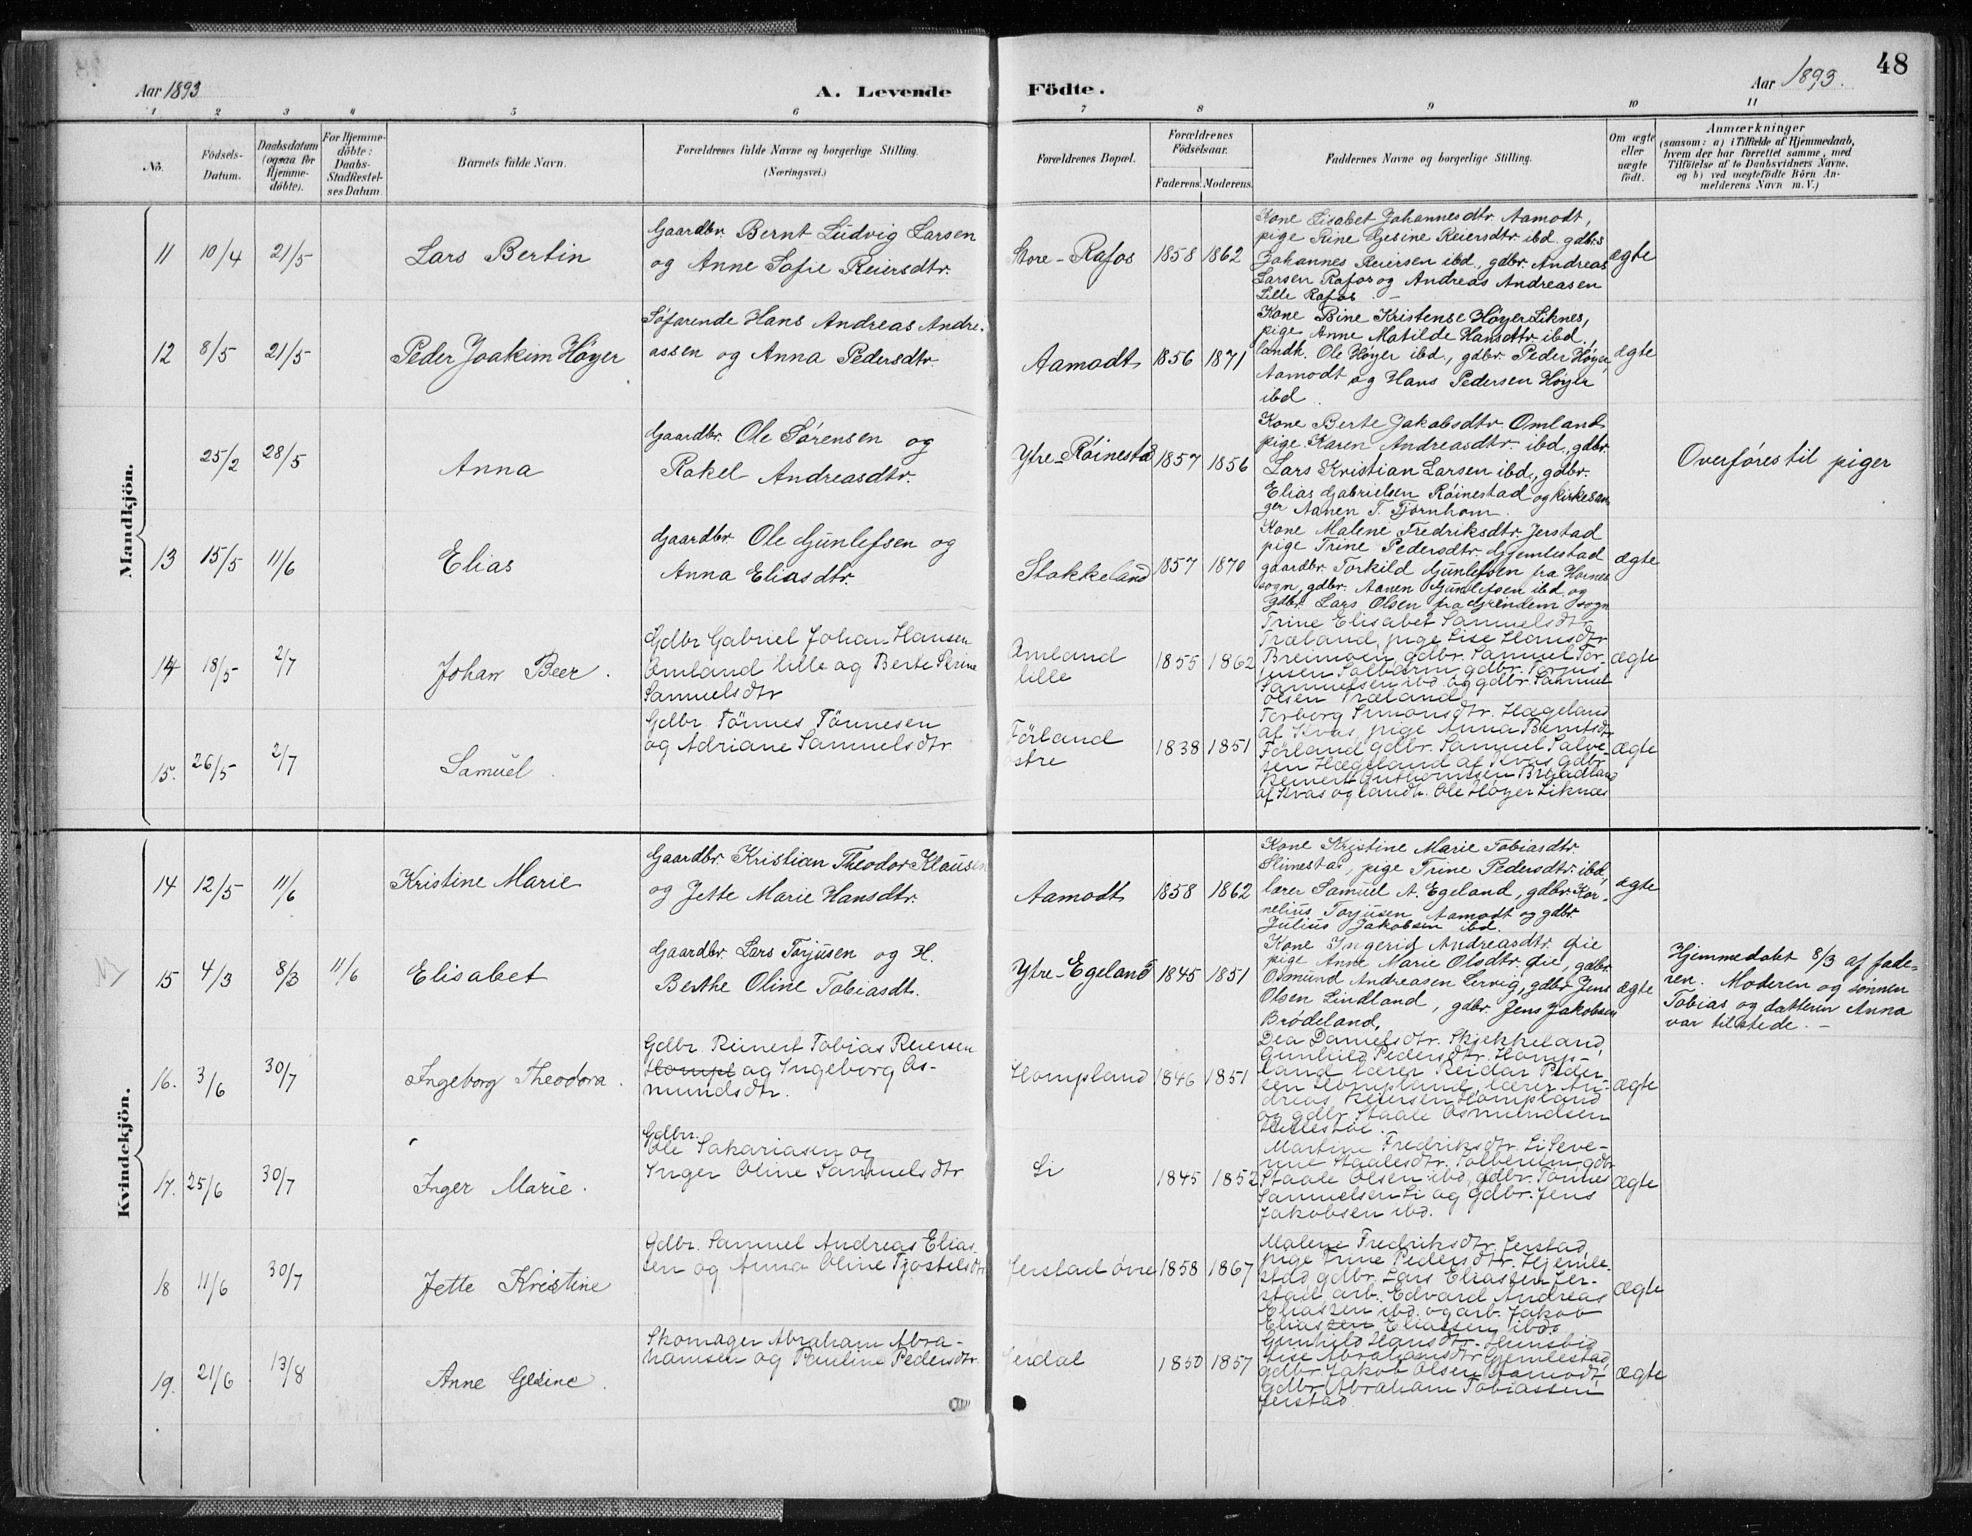 48
Aar 1893
A. Levende
Födte.
Aar 1893.
1 2 3 4 5 6 7 8 9 10 11
No.
Födsels-
Datum.
Daabsdatum
(ogsaa for
Hjemme-
döbte).
For Hjemme-
döbte:
Daabs-
Stadfæstel-
ses Datum.
Barnets fulde Navn.
Forældrenes fulde Navne og borgerlige Stilling.
(Næringsvei.)
Forældrenes Bopæl.
Forældrenes
Födselsaar.
Faderens. Moderens.
Faddernes Navne og borgerlige Stilling.
Om ægte
eller
uægte
födt.
Anmærkninger
(saasom: a) i Tilfælde af Hjemmedaab,
hvem der har forrettet samme, med
Tilföielse af to Daabsvidners Navne.
og b) ved uægtefödte Börn An-
melderens Navn m. V.)
Mandkjön.
11 10/4 21/5
Lars Bertin
Gaardbr. Bernt Ludvig Larsen
og Anne Sofie Reiersdtr.
Store-Rafos 1858 1862
Kone Lisabet Johannesdtr. Aamodt,
pige Rine Gesine Reiersdtr. ibd. gdbrs
Johannes Reiersen ibd., gdbr. Andreas
Larsen Rafos og Andreas Andreasen
Lille Rafos. -
ægte
12 8/5 21/5
Peder Joakim Høyer
Søfarende Hans Andreas Andre-
assen og Anna Pedersdtr.
Aamodt 1856 1871
Kone Bine Kristense Høyer Liknes,
pige Anne Matilde Hansdtr. ibd.,
landh. Ole Høyer ibd., gdbr. Peder Høyer,
Aamodt og Hans Pedersen Høyer
ibd.
ægte
25/2 28/5
Anna
Gaardbr. Ole Sørensen og
Rakel Andreasdtr.
Ytre-Röinestad 1857 1856
Kone Berte Jakobsdtr. Omland
pige Karen Andreasdtr. ibd., gdbr.
Lars Kristian Larsen ibd., gdbr.
Elias Gabrielsen Röinestad og kirkesan-
ger Aanen T. Fjørnhom.
Overføres til piger
13 15/5 11/6
Elias
Gaardbr. Ole Gunlefsen og
Anna Eliasdtr.
Stokkeland 1857 1870
Kone Malene Fredriksdtr. Jerstad
pige Trine Pedersdtr. Gjemlestad
gaardbr. Torkild Gunlefsen fra Hornes
sogn, gdbr. Aanen Gunlefsen ibd. og
gdbr. Lars Olsen fra Grendem sogn
ægte
14 18/5 2/7
Johan Beer.
Gdbr Gabriel Johan Hansen
Omland lille og Berte Serine
Samuelsdtr
Omland
lille
1855 1862
Trine Elisabet Samuelsdtr
Træland, pige Lise Hansdtr
Breimoen, gdbr. Samuel Tor-
jusen Solbærm gdbr. Torjus
Samuelsen ibd. og gdbr Samuel
Olsen Træland
ægte
15. 26/5 2/7
Samuel.
Gdbr. Tönnes Tönnesen
og Adriane Samuelsdtr.
Förland
östre
1838 1851
Torborg Simonsdtr. Hægeland
af Kvas, pige Anna Berntsdtr
Förland gdbr. Samuel Salve-
sen Hægeland af Kvas gdbr
Reinert Guthormsen Brædland
af Kvas og landh. Ole Høyer Liknæs
ægte
Kvindekjön.
14 12/5 11/6
Kristine Marie
Gaardbr. Kristian Theodor Klausen
og Jette Marie Hansdtr.
Aamodt 1858 1862
Kone Kristine Marie Tobiasdtr
Slimestad, pige Trine Pedersdtr. ibd.,
lærer Samuel A. Egeland, gdbr. Kor-
nelius Torjusen Aamodt og gdbr.
Julius Jakobsen ibd.
ægte
15 4/3 8/3 11/6
Elisabet
Gaardbr. Lars Torjusen og H.
Berthe Oline Tobiasdt.
Ytre-Egeland 1845 1851
Kone Ingerid Andreasdtr. Øie
pige Anne Marie Olsdtr. Øie, gdbr.
Osmund Andreasen Lervig, gdbr. Jens
Olsen Lindland, gdbr. Jens Jakobsen
Brödeland,
ægte
Hjemmedøbt 8/3 af fade-
ren. Moderen og sønnen
Tobias og datteren Anna
var tilstede. -
16. 3/6 30/7
Ingeborg Theodora.
Gdbr. Reinert Tobias Reiersen
Hompl og Ingeborg Os-
mundsdtr.
Hompland 1846 1851
Dea Danielsdtr. Skjekkeland,
Gunhild Pedersdtr. Homp-
land lærer Reidar Peder-
sen Hompland, lærer An-
dreas Reiersen Hompland
og gdbr Staale Osmundsen
ægte
17. 25/6 30/7
Inger Marie.
Gdbr.
Ole Sakariasen og
Inger Oline Samuelsdtr
Li 1845 1852
Martine Fredriksdtr. Li Seve-
rine Staalesdtr. Solberum gdbr
Staale Olsen ibd, gdbr. Tönnes
Samuelsen Li og gdbr. Jens
Jakobsen ibd.
ægte
18 11/6 30/7
Jette Kristine
Gdbr. Samuel Andreas Elias-
sen og Anna Oline Tjostelsdtr
Jerstad øvre 1858 1867
Malene Fredriksdtr. Jerstad,
pige Trine Pedersdtr. Hjemle-
stad gdbr. Lars Eliassen Jer-
stad arb. Edvard Andreas
Eliassen ibd. og arb. Jakob
Eliassen Eliassen ibds
ægte
19. 21/6 13/8
Anne Gesine.
Skomager Abraham Abra-
hamsen og Pauline Pedersdtr.
Jerdal 1850 1857
Gunhild Hansdtr. Hunsbid
Lise Abrahamsdtr Gjemlestad,
gdbr. Jakob Olsen Aamodt,
Gdbr. Abraham Tobiassen
Jerstad
ægte